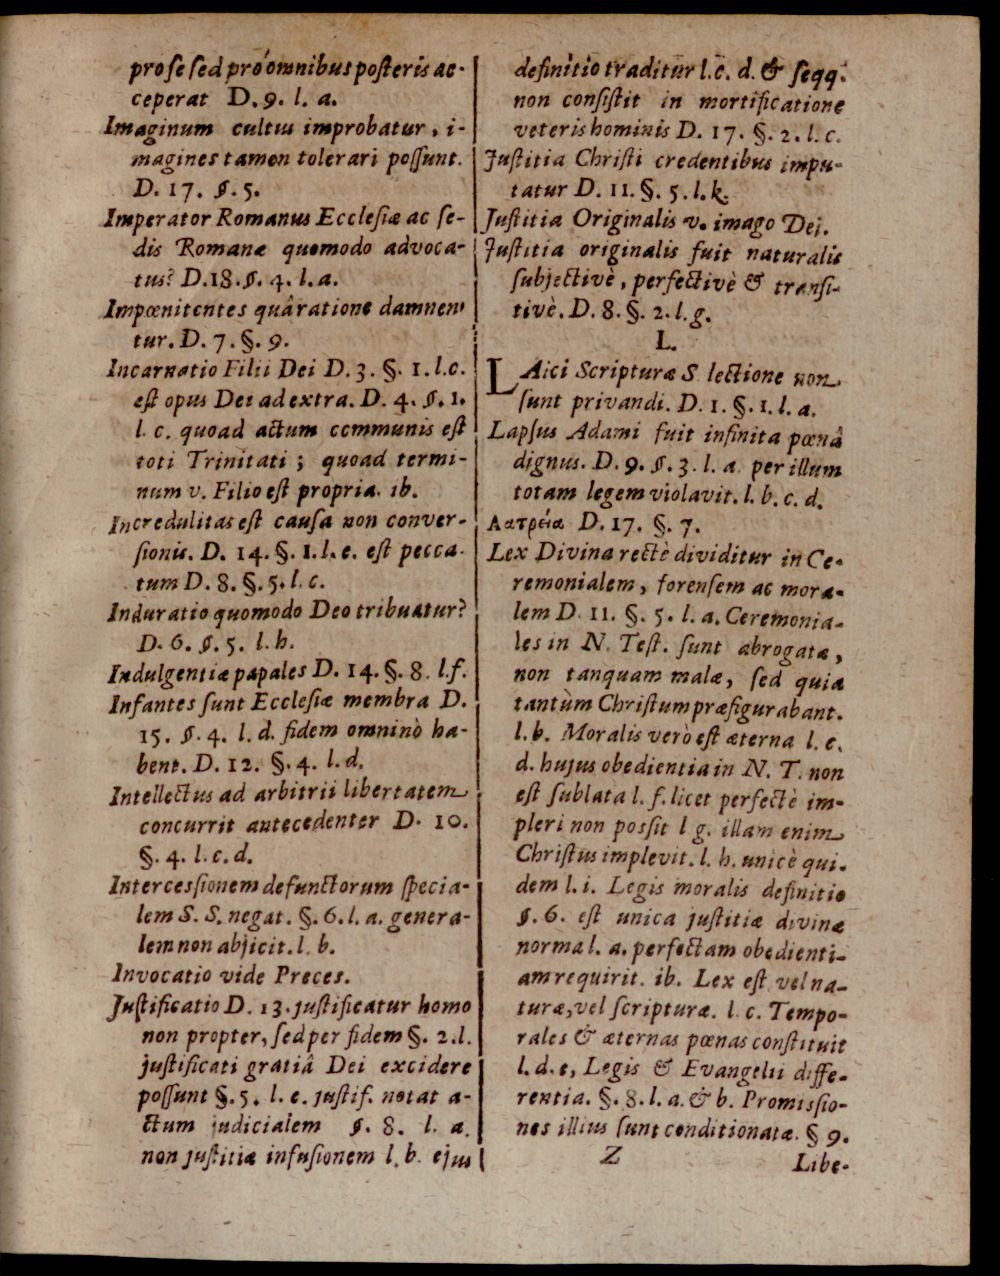 pro se sed pro omnibus posteris ac-
ceperat D. 9. l. a.
Imaginum cultus improbatur, i-
magines tamen tolerari possunt.
D. 17. §. 5.
Imperator Romanus Ecclesiæ ac se-
dis Romanæ quomodo advoca-
tus? D. 18. §. 4. l. a.
Impœnitentes quâ ratione damnen-
tur. D. 7. §. 9.
Incarnatio Filii Dei D. 3. §. 1. l. c.
est opus Dei ad extra. D. 4. §. 1.
l. c. quoad actum communis est
toti Trinitati; quoad termi-
num v. Filio est propria. ib.
Incredulitas est causa non conver-
sionis. D. 14. §. 1. l. e. est pecca-
tum D. 8. §. 5. l. c.
Induratio quomodo Deo tribuatur?
D. 6. §. 5. l. h.
Indulgentiæ papales D. 14. §. 8. l. f.
Infantes sunt Ecclesiæ membra D.
15. §. 4. l. d. fidem omninò ha-
bent. D. 12. §. 4. l. d.
Intellectus ad arbitrii libertatem
concurrit antecedenter D. 10.
§. 4. l. c. d.
Intercessionem defunctorum specia-
lem S. S. negat. §. 6. l. a. genera-
lem non abjicit. l. b.
Invocatio vide Preces.
Justificatio D. 13. justificatur homo
non propter, sed per fidem §. 2. l.
justificati gratiâ Dei excidere
possunt §. 5. l. e. justif. notat a-
ctum judicialem §. 8. l. a.
non justitiæ infusionem l. b. ejus
definitio traditur l. c. d. & seqq.
non consistit in mortificatione
veteris hominis D. 17. §. 2. l. c.
Justitia Christi credentibus impu-
tatur D. 11. §. 5. l. k.
Justitia Originalis v. imago Dei.
Justitia originalis fuit naturalis
subjectivè, perfectivè & transi-
tivè. D. 8. §. 2. l. g.
L.
LAici Scripturæ S lectione non
sunt privandi. D. 1. §. 1. l. a.
Lapsus Adami fuit infinita pœnâ
dignus. D. 9. §. 3. l. a. per illum
totam legem violavit. l. b. c. d.
Λατρεία D. 17. §. 7.
Lex Divina rectè dividitur in Ce-
remonialem, forensem ac mora-
lem D. 11. §. 5. l. a. Ceremonia-
les in N. Test. sunt abrogatæ,
non tanquam malæ, sed quia
tantùm Christum præfigurabant.
l. b. Moralis verò est æterna l. c.
d. hujus obedientia in N. T. non
est sublata l. f. licet perfectè im-
pleri non possit l g. illam enim
Christus implevit. l. h. unicè qui-
dem l. i. Legis moralis definitio
§. 6. est unica justitiæ divinæ
norma l. a. perfectam obedienti-
am requirit. ib. Lex est vel na-
turæ, vel scripturæ. l. c. Tempo-
rales & æternas pœnas constituit
l. d. e, Legis & Evangelii diffe-
rentia. §. 8. l. a. & b. Promissio-
nes illius sunt conditionatæ. § 9.
Z Libe-